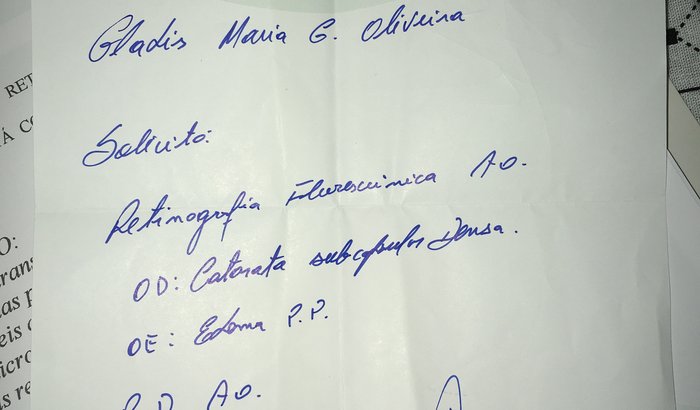 Gladis Maria G. Oliveira
RET
Á CO
Solicito:
Retinografia Fluresceinica AO.
O:
trans
OD: Catarata subcapsular densa.
as p
OE: Edema P.P.
eis
icro
s re
R.D. AO.